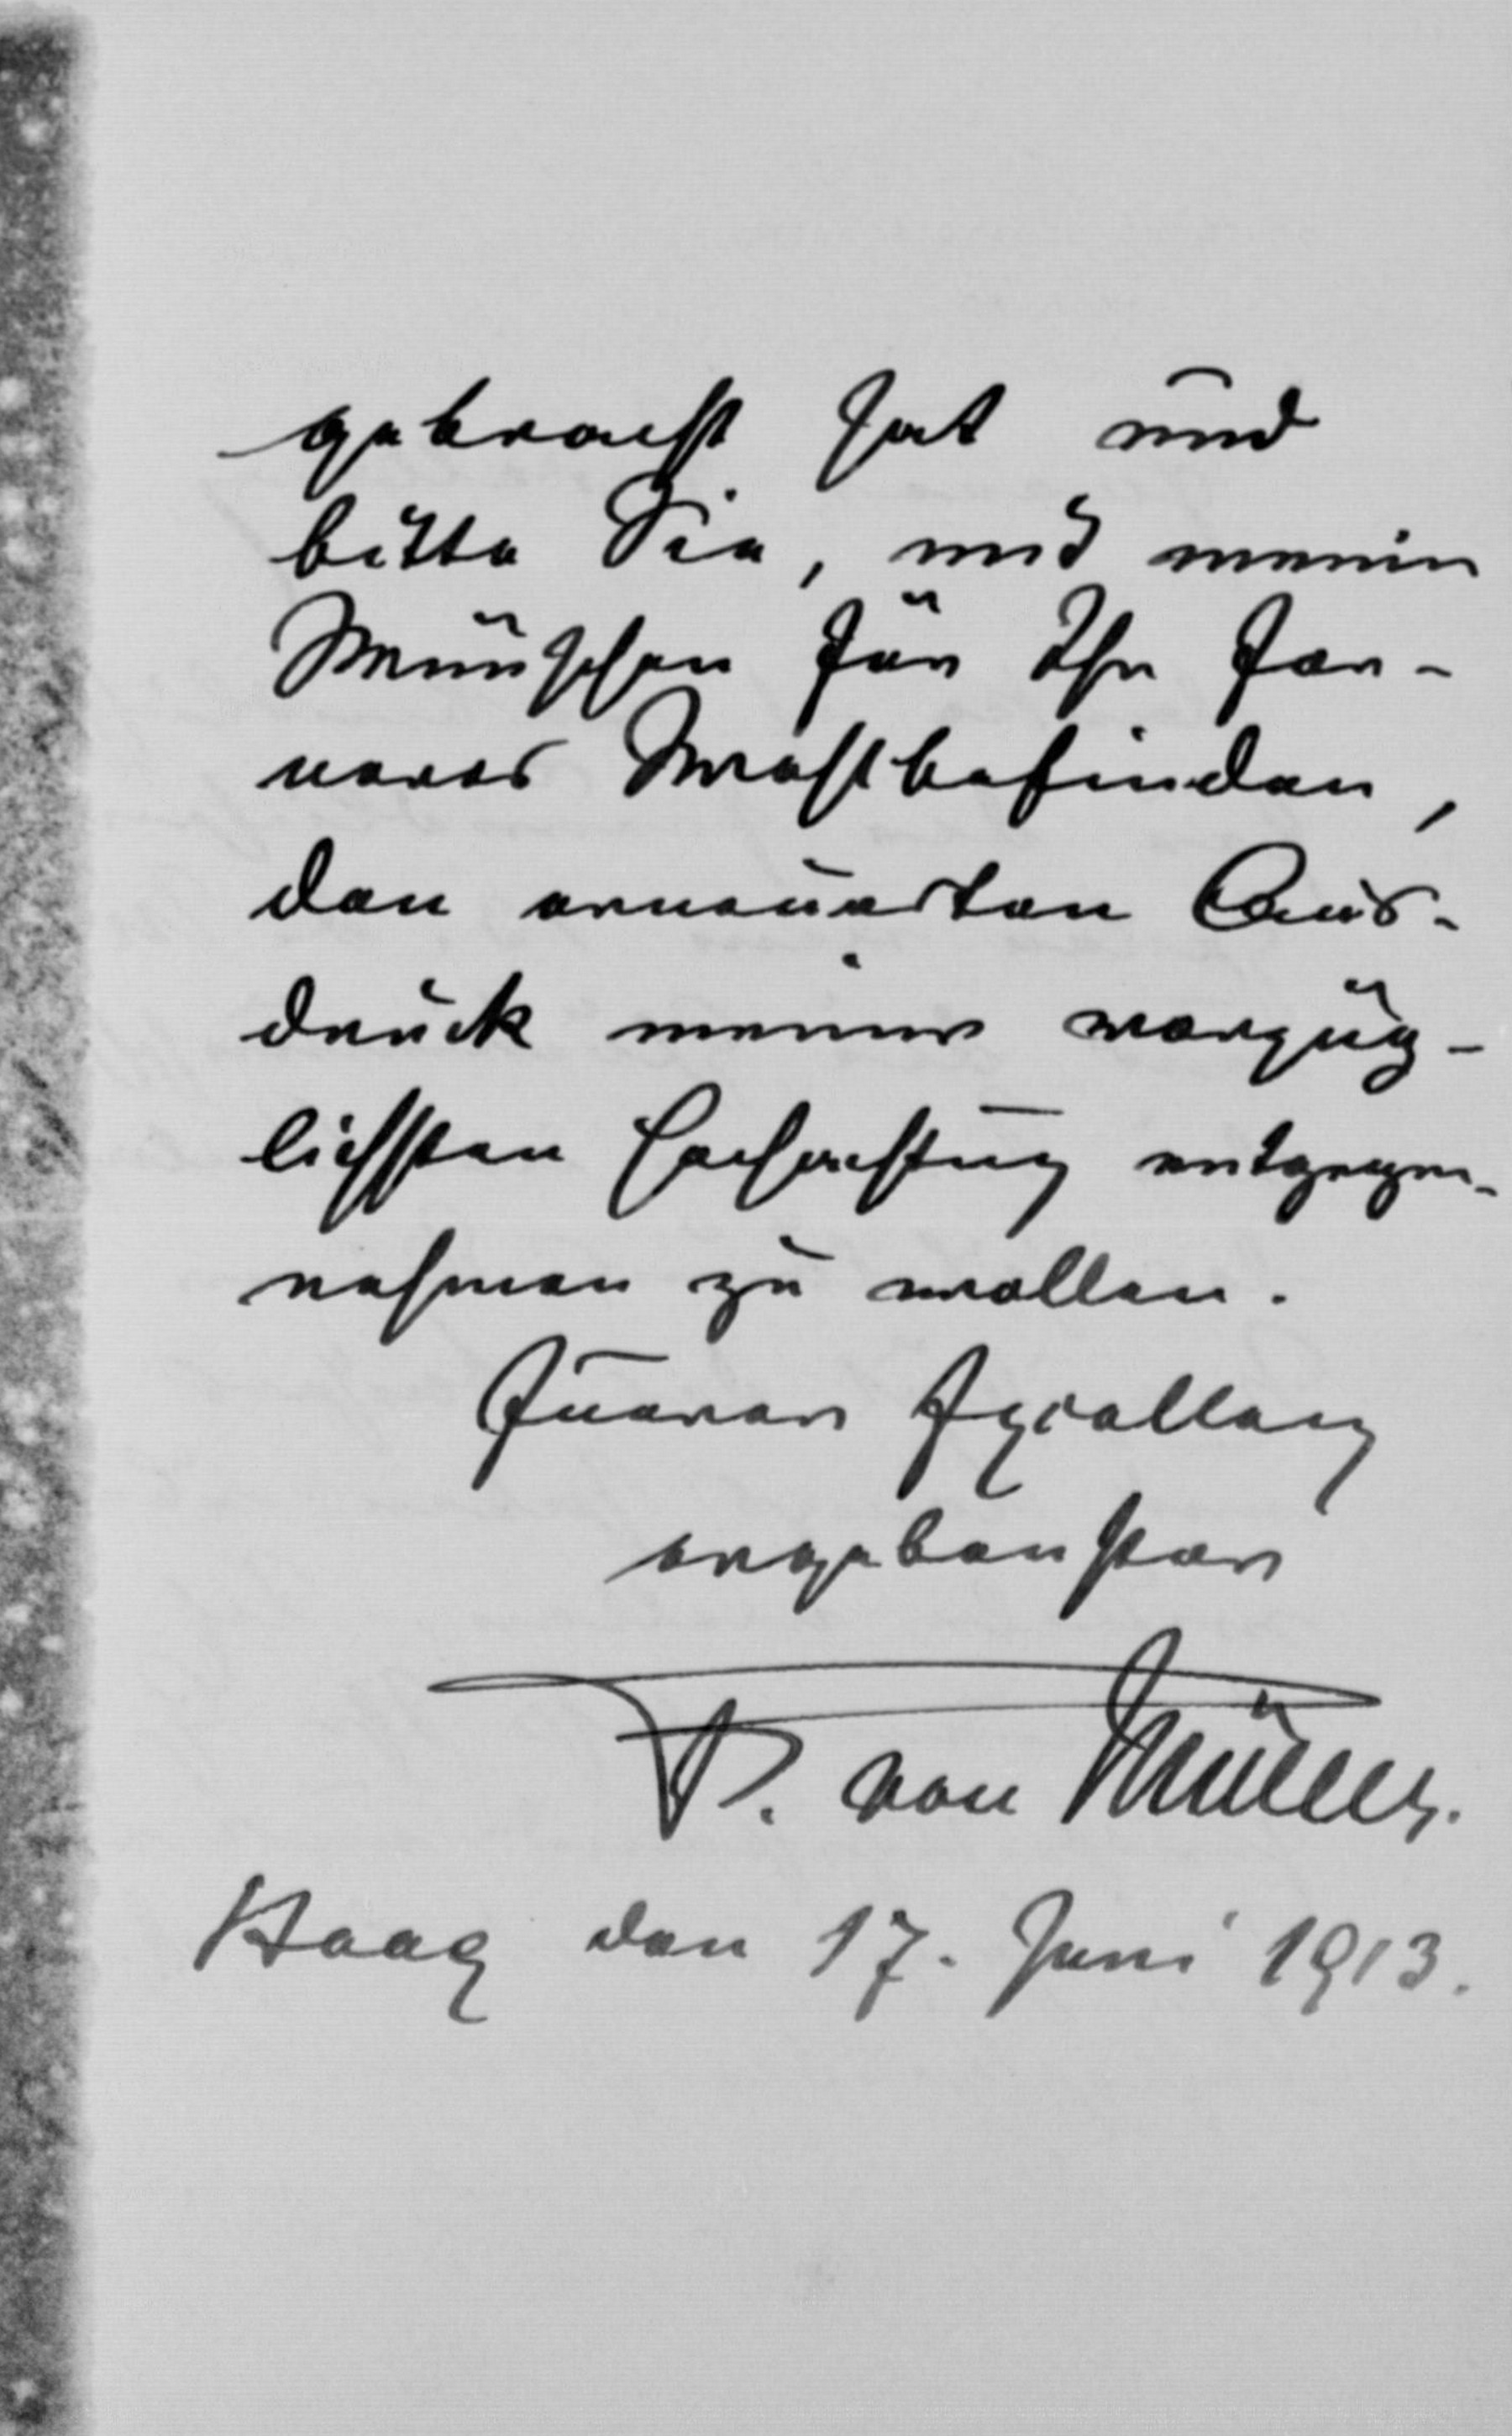 gebracht hat und
bitte Sie, mit meinen
Wünschen für Ihr fer-
neres Wohlbefinden,
den erneuerten Aus-
druck meiner vorzüg-
lichsten Hochachtung entgegen-
nehmen zu wollen.
Euerer Exzellenz
ergebenster
F. von Müller.
Haag den 17. Juni 1913.